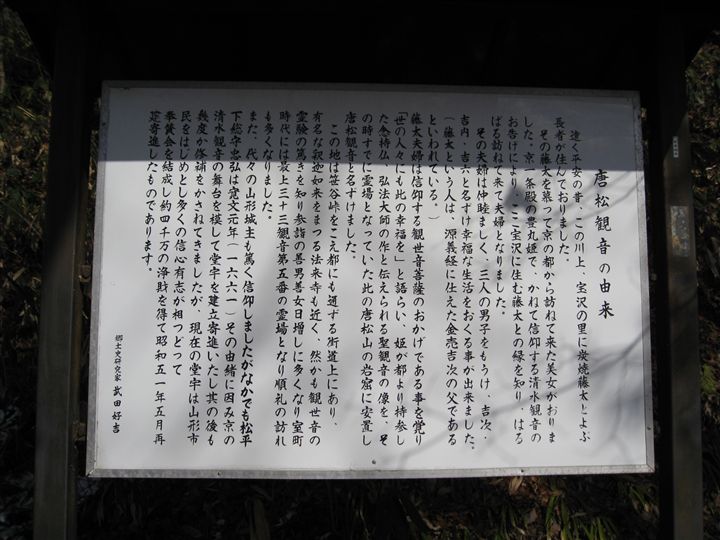 唐松観音の由来
遠く平安の昔、この川上、宝沢の里に炭焼藤太とよぶ
長者が住んでおりました。
その藤太を慕って京の都から訪ねて来た美女がおりま
した。京一条殿の豊丸姫で、かねて信仰する清水観音の
お告げにより、ここ宝沢に住む藤太との縁を知り、はる
ばる訪ねて来て夫婦となりました。
その夫婦は仲睦ましく、三人の男子をもうけ、吉次・
吉内・吉六と名ずけ幸福な生活をおくる事が出来ました。
(藤太という人は、源義経に仕えた金売吉次の父である
といわれている。)
藤太夫婦は信仰する観世音菩薩のおかげである事を覚り
「世の人々にも此の幸福を」と語らい、姫が都より持参し
た念持仏(弘法大師の作と伝えられる聖観音の像を、そ
の時すでに霊場となっていた此の唐松山の岩窟に安置し
唐松観音と名ずけました。
この地は笹谷峠をこえ都にも通ずる街道上にあり、
有名な釈迦如来をまつる法来寺も近く、然かも観世音の
霊験の篤きを知り参詣の善男善女日増しに多くなり室町
時代には最上三十三観音第五番の霊場となり順礼の訪れ
も多くなりました。
また、代々の山形城主も篤く信仰しましたがなかでも松平
下総守忠弘は寛文元年(一六六一)その由緒に因み京の
清水観音の舞台を模して堂宇を建立寄進いたし其の後も
幾度か修補をかさねてきましたが、現在の堂宇は山形市
民をはじめとし多くの信心有志が相つどって
奉賛会を結成し約四千万の浄財を得て昭和五一年五月再
建寄進したものであります。
郷土史研究家 武田好吉